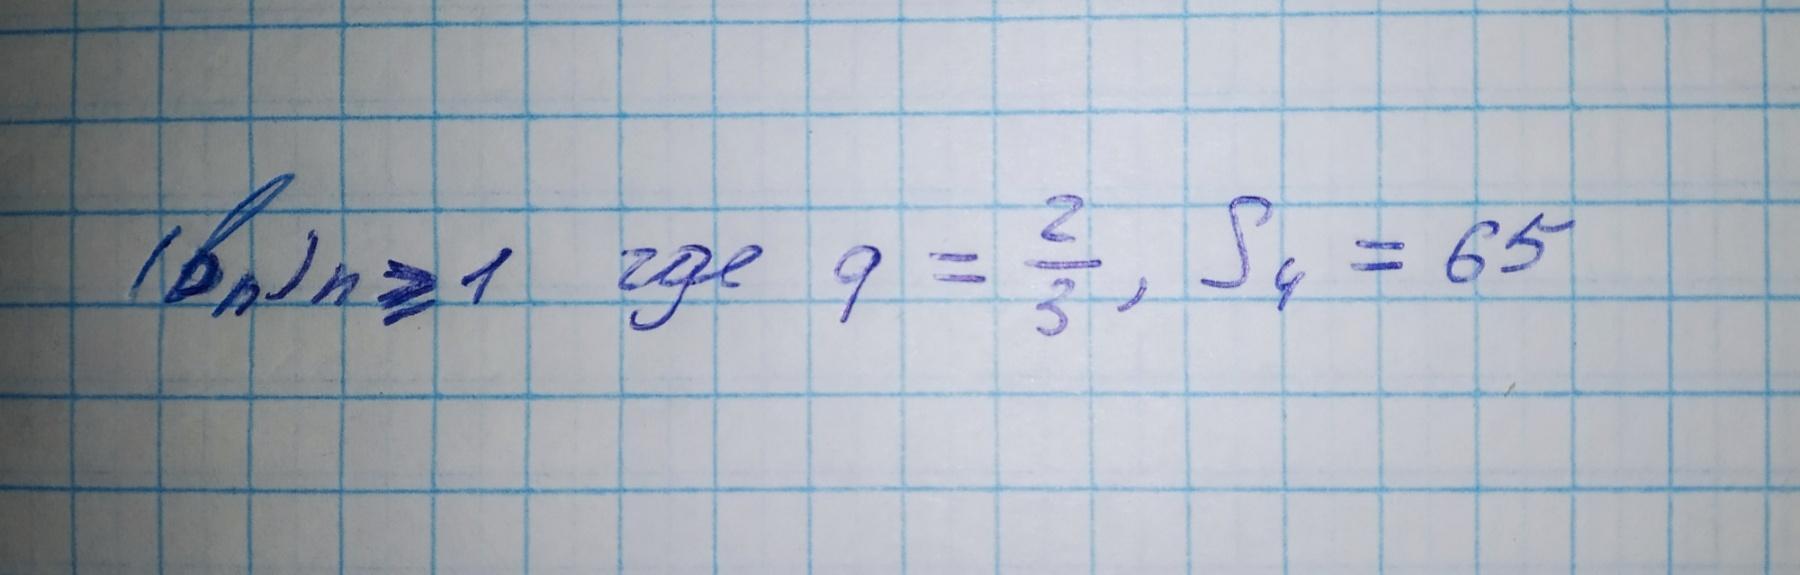 (bₙ)ₙ ⩾ 1 где q = 2/3, S₄ = 65